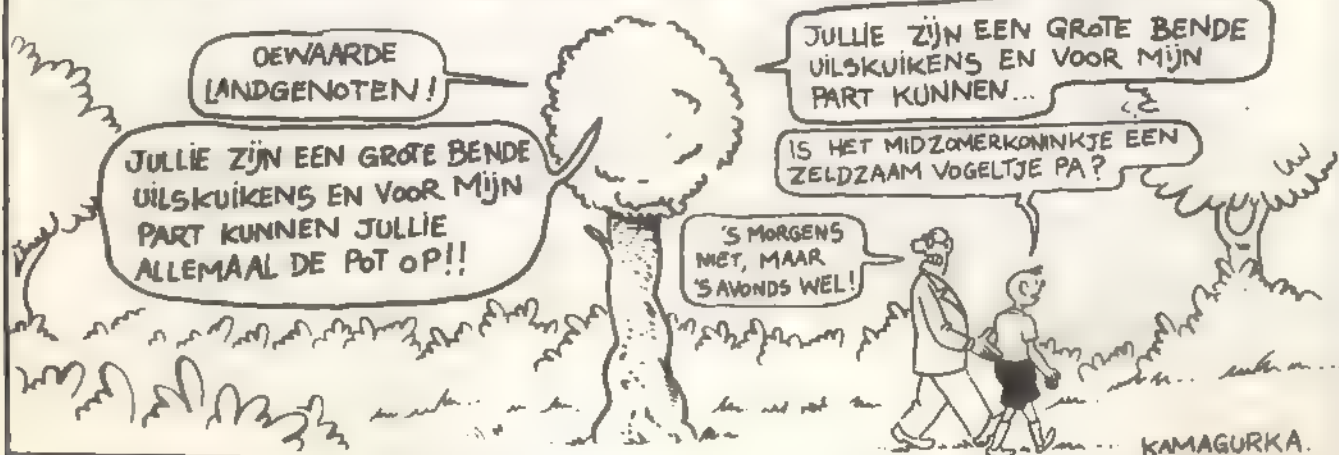 OEWAARDE
LANDGENOTEN!
JULLIE ZIJN EEN GROTE BENDE
UILSKUIKENS EN VOOR MIJN
PART KUNNEN JULLIE
ALLEMAAL DE POT OP!!
JULLIE ZIJN EEN GROTE BENDE
UILSKUIKENS EN VOOR MIJN
PART KUNNEN...
IS HET MIDZOMERKONINKJE EEN
ZELDZAAM VOGELTJE PA?
'S MORGENS
NIET, MAAR
'S AVONDS WEL!
KAMAGURKA.